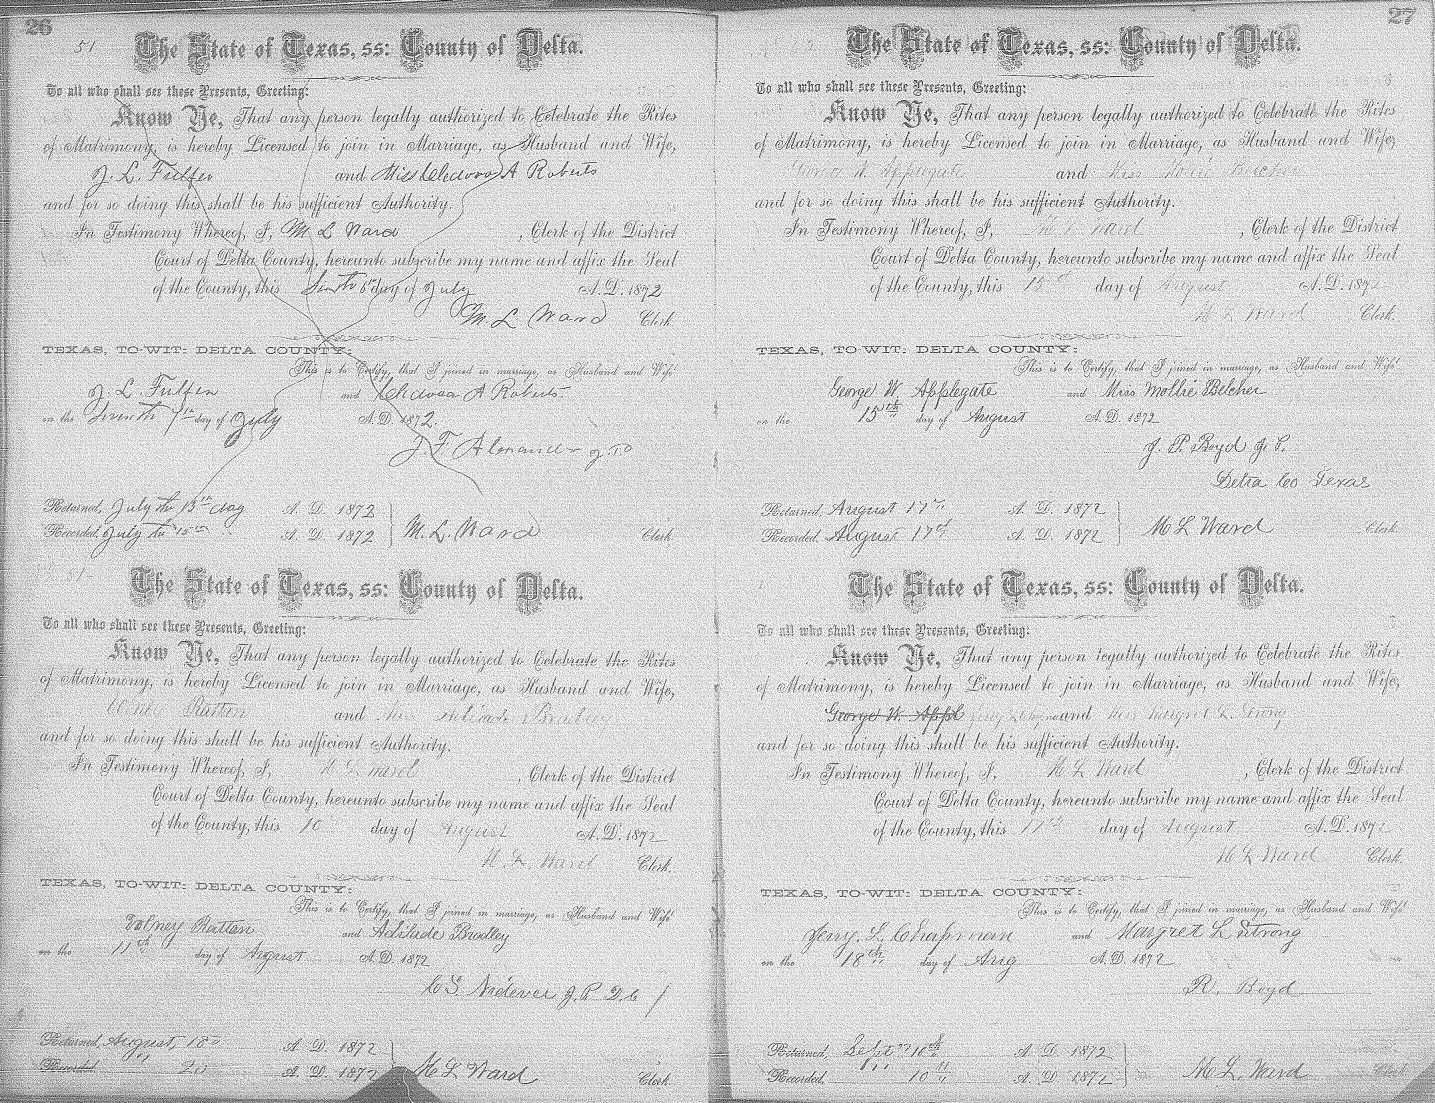 26
51
The State of Texas, ss: County of Delta.
To all who shall see these Presents, Greeting:
Know Ye, That any person legally authorized to Celebrate the Rites
of Matrimony, is hereby Licensed to join in Marriage, as Husband and Wife,
J. L. Fulfer and Miss A Roberts
and for so doing this shall be his sufficient Authority.
In Testimony Whereof, I, M L Ward, Clerk of the District
Court of Delta County, hereunto subscribe my name and affix the Seal
of the County, this day of July A.D. 1872
M. L Ward Clerk.
TEXAS, TO-WIT: DELTA COUNTY:
This is to Certify, that I joined in marriage, as Husband and Wife
J. L. Fulfer and A Roberts
on the Seventh 7th day of July A.D. 1872.
J F Alexander
Returned, July the 13th day A. D. 1872
Recorded, July the 15th A. D. 1872 M. L. Ward Clerk
51
The State of Texas, ss: County of Delta.
To all who shall see these Presents, Greeting:
Know Ye, That any person legally authorized to Celebrate the Rites
of Matrimony, is hereby Licensed to join in Marriage, as Husband and Wife,
Volney Rattan and Miss Adilade Bradley
and for so doing this shall be his sufficient Authority.
In Testimony Whereof, I, M L Ward, Clerk of the District
Court of Delta County, hereunto subscribe my name and affix the Seal
of the County, this 10 day of August A.D. 1872
M. L. Ward Clerk.
TEXAS, TO-WIT: DELTA COUNTY:
This is to Certify, that I joined in marriage, as Husband and Wife
Volney Rattan and Adilade Bradley
on the 11th day of August A.D. 1872
C S Nidever J. P. D. C
Returned, August, 18 A. D. 1872
Recorded, " A. D. 1872 M L Ward Clerk
27
The State of Texas, ss: County of Delta.
To all who shall see these Presents, Greeting:
Know Ye, That any person legally authorized to Celebrate the Rites
of Matrimony, is hereby Licensed to join in Marriage, as Husband and Wife,
George W. Applegate and Miss Mollie Belcher
and for so doing this shall be his sufficient Authority.
In Testimony Whereof, I, M L Ward, Clerk of the District
Court of Delta County, hereunto subscribe my name and affix the Seal
of the County, this 15th day of August A.D. 1872
M L Ward Clerk.
TEXAS, TO-WIT: DELTA COUNTY:
This is to Certify, that I joined in marriage, as Husband and Wife
George W. Applegate and Miss Mollie Belcher
on the 15th day of August A.D. 1872
J. P. Boyd J. P.
Delta Co Texas
Returned, August 17th A. D. 1872
Recorded, August 17th A. D. 1872 M L Ward Clerk
The State of Texas, ss: County of Delta.
To all who shall see these Presents, Greeting:
Know Ye, That any person legally authorized to Celebrate the Rites
of Matrimony, is hereby Licensed to join in Marriage, as Husband and Wife,
George W. Appl and Miss Margret L Strong
and for so doing this shall be his sufficient Authority.
In Testimony Whereof, I, M L Ward, Clerk of the District
Court of Delta County, hereunto subscribe my name and affix the Seal
of the County, this 17th day of August A.D. 1872
M L Ward Clerk.
TEXAS, TO-WIT: DELTA COUNTY:
This is to Certify, that I joined in marriage, as Husband and Wife
L. Chapman and Margret L Strong
on the 18th day of Aug A.D. 1872
R. Boyd
Returned, Sept 10th A. D. 1872
Recorded, " 10 " A. D 1872 M L. Ward Clerk